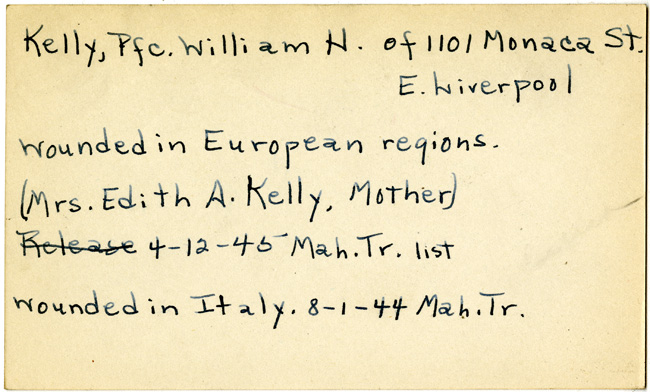 Kelly, Pfc. William H. of 1101 Monaca St.
E. Liverpool
wounded in European regions.
(Mrs. Edith A. Kelly, Mother)
Release 4-12-45 Mah. Tr. list
wounded in Italy. 8-1-44 Mah. Tr.